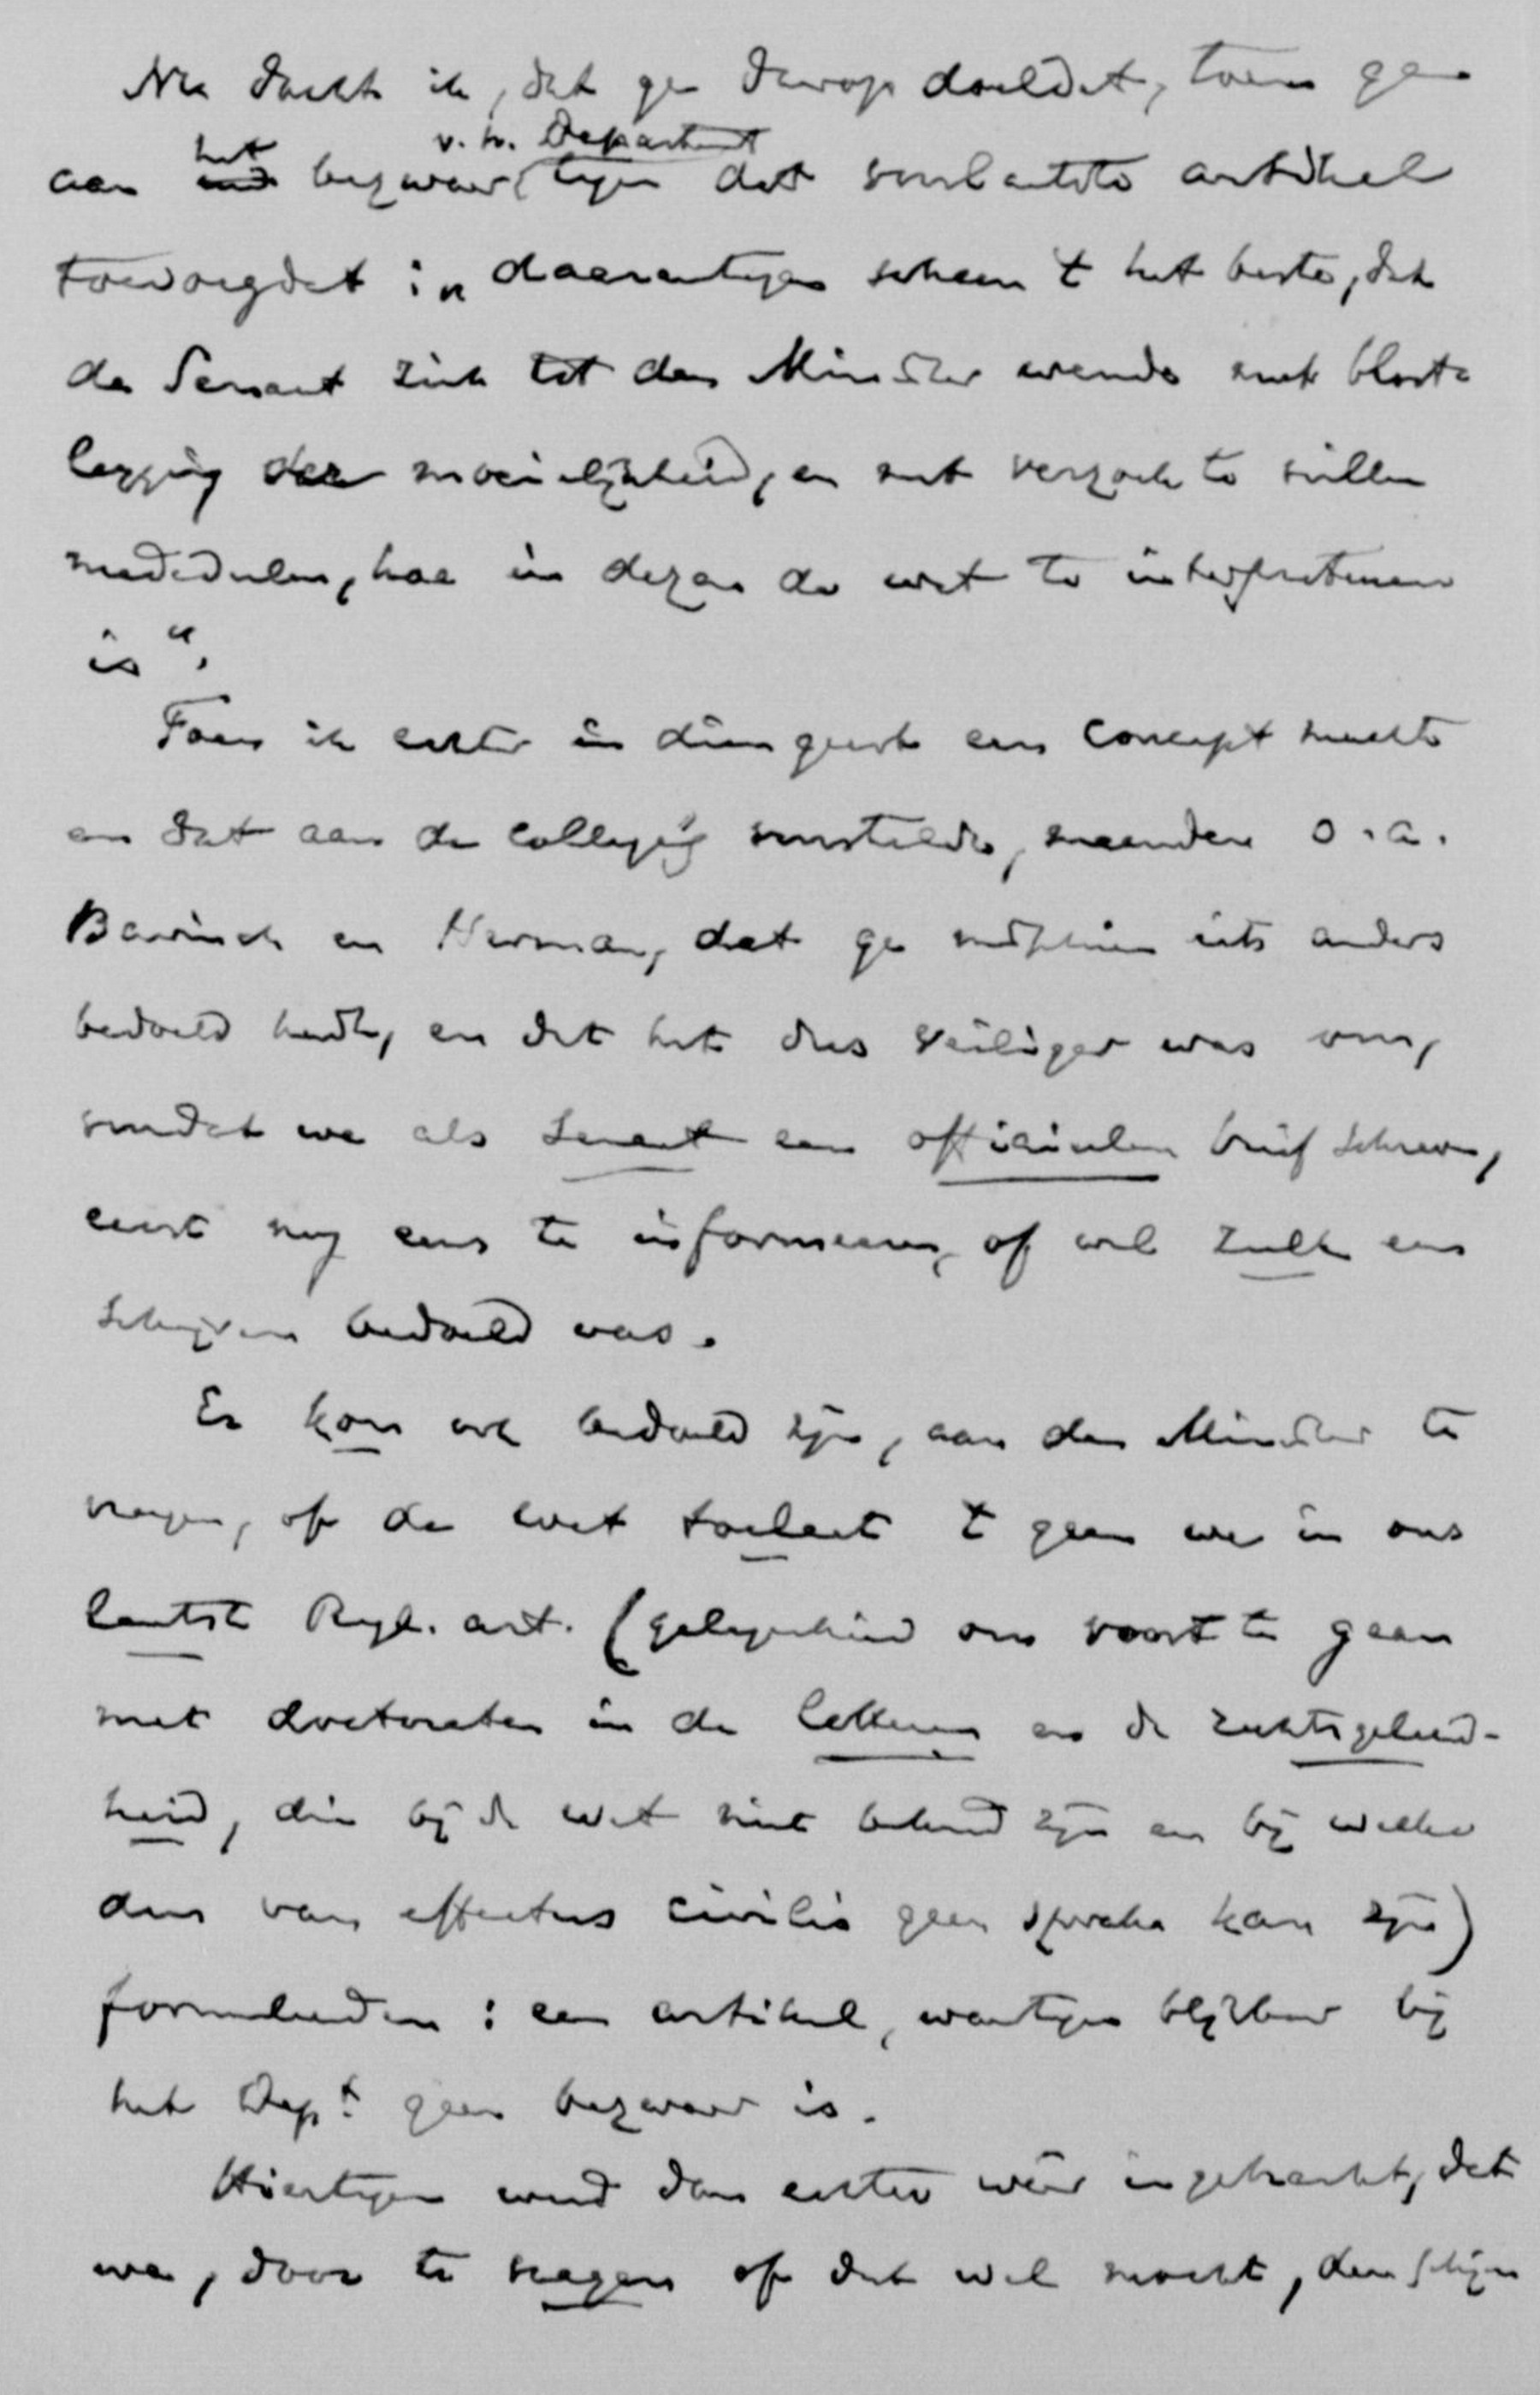 Nu dacht ik, dat ge daarop doeldet, toen ge
v. h. Departement
aan het bezwaar tegen dat voorlaatste artikel
toevoegdet: „daarentegen scheen 't het beste, dat
de Senaat zich tot den Minister wende met bloot-
legging der moeielijkheid, en met verzoek te willen
mededeelen, hoe in dezen de wet te interpreteeren
is".
Toen ik echter in dien geest een concept maakte
en dat aan de collega's voorstelde, meenden o.a.
Bavinck en Herman, dat ge misschien iets anders
bedoeld hadt, en dat het dus veiliger was om,
voordat we als Senaat een officieelen brief schreven,
eerst nog eens te informeeren, of wel zulk een
schrijven bedoeld was.
Er kon ook bedoeld zijn, aan den Minister te
vragen, of de wet toelaat 't geen we in ons
laatste Regl. art. (gelegenheid om voort te gaan
met doctoraten in de letteren en de rechtsgeleerd-
heid, die bij de wet niet bekend zijn en bij welke
dus van effectus civilis geen sprake kan zijn)
formuleerden: een artikel, waartegen blijkbaar bij
het Dept geen bezwaar is.
Hiertegen werd dan echter weêr ingebracht, dat
we, door te vragen of dat wel mocht, den schijn